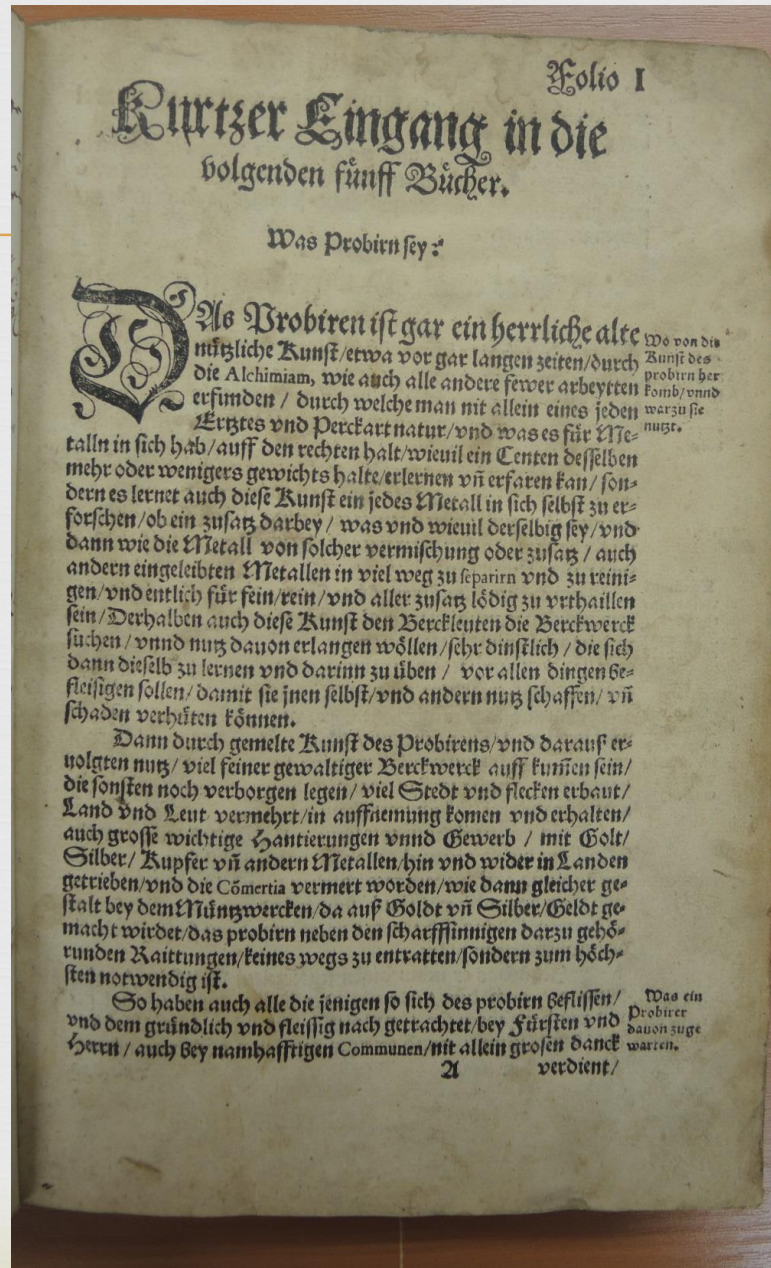 Folio I
Kurtzer Eingang in die
volgenden fünff Bücher.
Was Probirn sey:
DAs Probiren ist gar ein herrliche alte
nützliche Kunst/etwa vor gar langen zeiten/durch
die Alchimiam, wie auch alle andere fewer arbeytten
erfunden / durch welche man nit allein eines jeden
Ertztes vnd Perckart natur/vnd was es für Me-
talln in sich hab/auff den rechten halt/wieuil ein Centen desselben
mehr oder wenigers gewichts halte/erlernen vn̄ erfaren kan/ son-
dern es lernet auch diese Kunst ein jedes Metall in sich selbst zu er-
forschen/ob ein zusatz darbey / was vnd wieuil derselbig sey/vnd
dann wie die Metall von solcher vermischung oder zusatz / auch
andern eingeleibten Metallen in viel weg zu separirn vnd zu reini-
gen/vnd entlich für fein/rein/vnd aller zusatz lödig zu vrthaillen
sein/Derhalben auch diese Kunst den Berckleuten die Berckwerck
suchen/vnnd nutz dauon erlangen wöllen/sehr dinstlich / die sich
dann dieselb zu lernen vnd darinn zu üben / vor allen dingen be-
fleisigen sollen/damit sie jnen selbst/vnd andern nutz schaffen/ vn̄
schaden verhüten können.
Dann durch gemelte Kunst des Probirens/vnd daraus er-
uolgten nutz/ viel feiner gewaltiger Berckwerck auff kum̄en sein/
die sonsten noch verborgen legen/ viel Stedt vnd flecken erbaut/
Land vnd Leut vermehrt/in auffnemung komen vnd erhalten/
auch grosse wichtige Hantierungen vnnd Gewerb / mit Golt/
Silber/ Kupfer vn̄ andern Metallen/hin vnd wider in Landen
getrieben/vnd die Cōmertia vermert worden/wie dann gleicher ge-
stalt bey dem Müntzwercken/da auß Goldt vn̄ Silber/Geldt ge-
macht wirdet/das probirn neben den scharffsinnigen darzu gehö-
runden Raittungen/keines wegs zu entratten/sondern zum höch-
sten notwendig ist.
So haben auch alle die jenigen so sich des probirn beflissen/
vnd dem gründlich vnd fleissig nach getrachtet/bey Fürsten vnd
Herrn / auch bey namhafftigen Communen/nit allein grosen danck
A verdient/
Wo von die
Kunst des
probirn her
komb/vnnd
warzu sie
nutzt.
Was ein
Probirer
dauon zuge
warten.